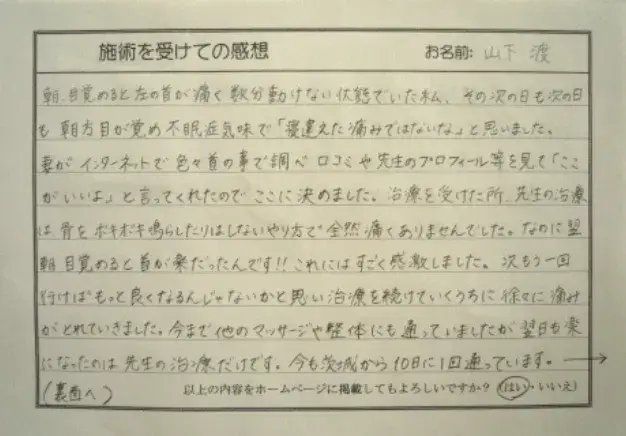 施術を受けての感想 お名前: 山下 渡
朝、目覚めると左の首が痛く数分動けない状態でいた私、その次の日も次の日
も朝方目が覚め不眠症気味で「寝違えた痛みではないな」と思いました。
妻がインターネットで色々首の事で調べ口コミや先生のプロフィール等を見て「ここ
がいいよ」と言ってくれたのでここに決めました。治療を受けた所、先生の治療
は骨をボキボキ鳴らしたりはしないやり方で全然痛くありませんでした。なのに翌
朝目覚めると首が楽だったんです!!これにはすごく感激しました。次もう一回
行けばもっと良くなるんじゃないかと思い治療を続けていくうちに徐々に痛み
がとれていきました。今まで他のマッサージや整体にも通っていましたが翌日も楽
になったのは先生の治療だけです。今も茨城から10日に1回通っています。→
(裏面へ) 以上の内容をホームページに掲載してもよろしいですか? (はい・いいえ)